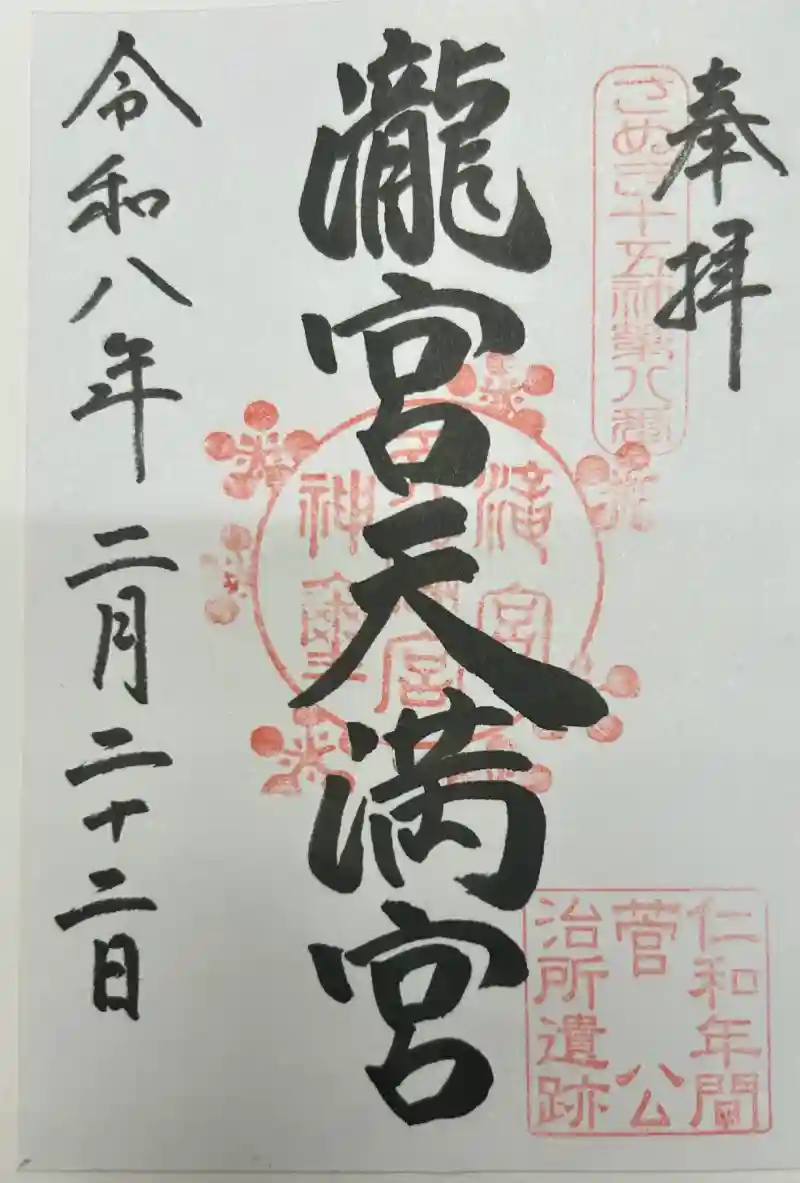 奉拝
さぬき十五社第八番
瀧宮天満宮
滝宮
天満宮
神璽
仁和年間
菅公
治所遺跡
令和八年二月二十二日